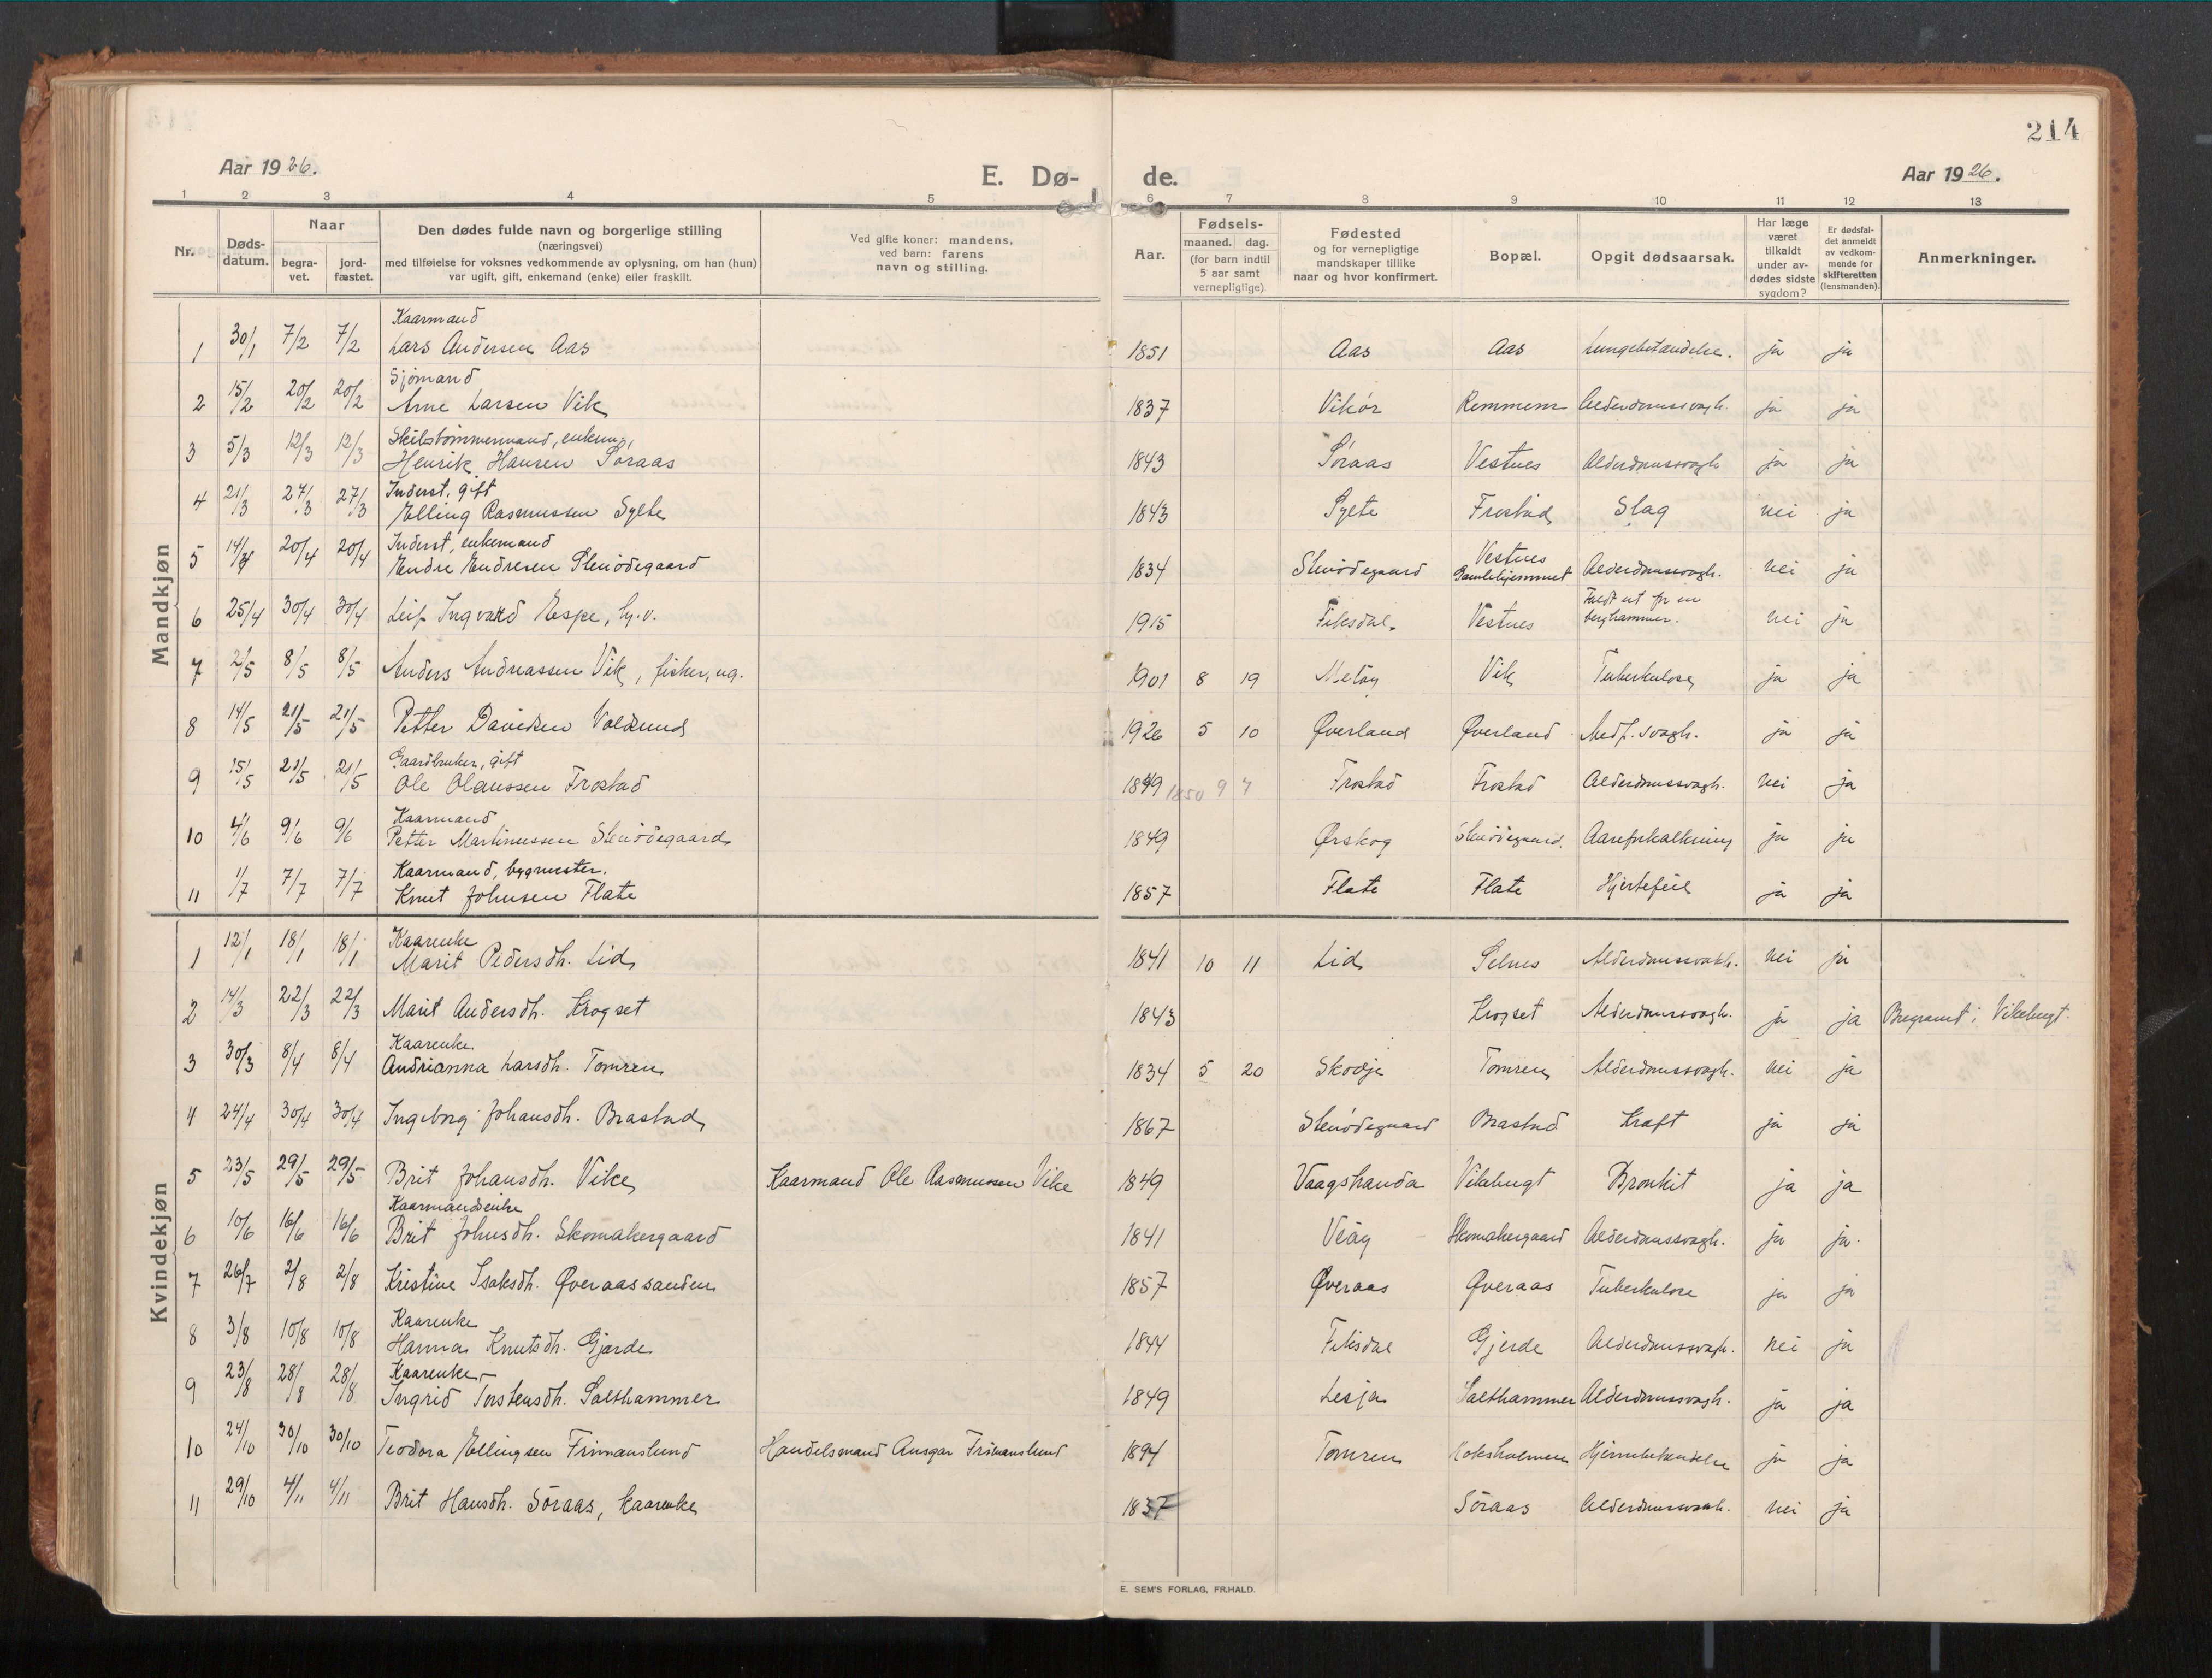 214
Aar 1926.
E. Dø-
de.
Aar 1926.
1 2 3 4 5 6 7 8 9 10 11 12 13
Nr.
Døds-
datum.
Naar
begra-
vet.
jord-
fæstet.
Den dødes fulde navn og borgerlige stilling
(næringsvei)
med tilføielse for voksnes vedkommende av oplysning, om han (hun)
var ugift, gift, enkemand (enke) eller fraskilt.
Ved gifte koner: mandens,
ved barn: farens
navn og stilling.
Aar.
Fødsels-
maaned. dag.
(for barn indtil
5 aar samt
vernepligtige)
Fødested
og for vernepligtige
mandskaper tillike
naar og hvor konfirmert.
Bopæl.
Opgit dødsaarsak.
Har læge
været
tilkaldt
under av-
dødes sidste
sygdom?
Er dødsfal-
det anmeldt
av vedkom-
mende for
skifteretten
(lensmanden).
Anmerkninger.
Mandkjøn
Kaarmand
1 30/1 7/2 7/2 Lars Andersen Aas 1851 Aas Aas Lungebetændelse. ja ja
Sjømand
2 15/2 20/2 20/2 Arne Larsen Vik 1837 Vikør Remmem Alderdomssvagh. ja ja
Skibstømmermand, enkem.,
3 5/3 12/3 12/3 Henrik Hansen Søraas 1843 Søraas Vestnes Alderdomssvagh ja ja
Inderst, gift
4 21/3 27/3 27/3 Elling Rasmussen Sylte 1843 Sylte Frostad Slag nei ja
Inderst, enkemand
5 14/4 20/4 20/4 Endre Endresen Stenødegaard 1834 Stenødegaard Vestnes Gamlehjemmet Alderdomssvagh. nei ja
6 25/4 30/4 30/4 Leif Ingvard Espe, 1915 Fiksdal. Vestnes Faldt ut for en berghammer. nei ja
7 2/5 8/5 8/5 Anders Andreassen Vik, fisker, ug. 1901 8 19 Vik Tuberkulose ja ja
8 14/5 21/5 21/5 Petter Davidsen Voldsund 1926 5 10 Øverland Øverland Medf. svagh. ja ja
Gaardbruker, gift
9 15/5 21/5 21/5 Ole Olaussen Frostad 1849 1850 9 7 Frostad Frostad Alderdomssvagh. nei ja
Kaarmand
10 4/6 9/6 9/6 Petter Martinussen Stenødegaard 1849 Ørskog Stenødegaard. Aareforkalkning ja ja
Kaarmand, bygmester.
11 1/7 7/7 7/7 Knut Johnsen Flate 1857 Flate Flate Hjertefeil ja ja
Kvindekjøn
Kaarenke
1 12/1 18/1 18/1 Marit Pedersdh. Lid 1841 10 11 Lid Selnes Alderdomssvakh. nei ja
2 14/3 22/3 22/3 Marit Andersdh. Krogset 1843 Krogset Alderdomssvagh. ja ja Begravet i Vikebugt.
Kaarenke
3 30/3 8/4 8/4 Andrianna Larsdh. Tomren 1834 5 20 Skodje Tomren Alderdomssvagh. nei ja
4 24/4 30/4 30/4 Ingeborg Johansdh. Brastad 1867 Stenødegaard Brastad Kræft ja ja
5 23/5 29/5 29/5 Brit Johansdh. Vike Kaarmand Ole Rasmussen Vike 1849 Vaagstranda Vikebugt Bronkit ja ja
Kaarmandsenke
6 10/6 16/6 16/6 Brit Johnsdh. Skomakergaard 1841 Veøy Skomakergaard Alderdomssvagh. ja ja.
7 26/7 2/8 2/8 Kristine Isaksdh. Øveraassanden 1857 Øveraas Øveraas Tuberkulose ja ja
Kaarenke
8 3/8 10/8 10/8 Hanna Knutsdh. Gjærde 1844 Fiksdal Gjerde Alderdomssvagh. nei ja
Kaarenke
9 23/8 28/8 28/8 Ingrid Torstensdh. Salthammer 1849 Lesja Salthammer Alderdomssvagh. ja ja
10 24/10 30/10 30/10 Teodora Ellingsen Frimanslund Handelsmand Ansgar Frimanslund 1894 Tomren Koksholmen Hjernebetændelse ja ja
11 29/10 4/11 4/11 Brit Hansdh. Søraas, kaarenke 1837 Søraas Alderdomssvakh. nei ja
E. SEM'S FORLAG, FR.HALD.